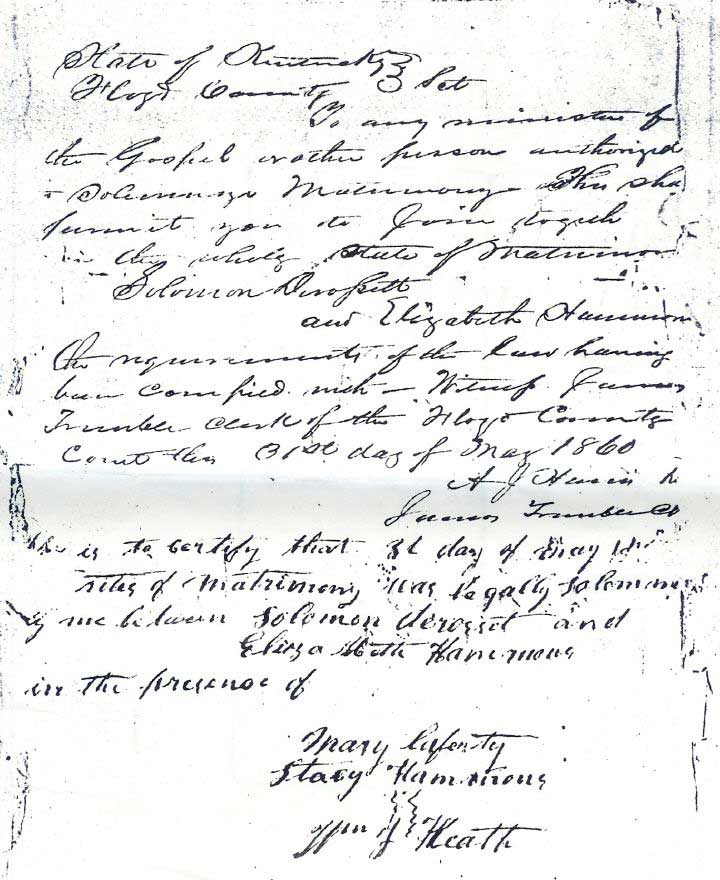 State of Kentucky }
Floyd County } Sct
To any minister of
the Gospel or other person authorized
to Solemnize Matrimony This sha
permit you to Join togeth
in the wholy state of Matrimon
Solomon Derossett
and Elizabeth Hammon
the requirements of the law having
been complied with - Witness James
Trimble clerk of the Floyd County
Court this 31st day of May 1860
A J Harris
James Trimble
is to certify that 31 day of may
rites of matrimony was legally solomni
by me between Solomon derosset and
Eliza Beth Hammons
in the presence of
Mary laferty
Stacy Hammons
Wm J Heath